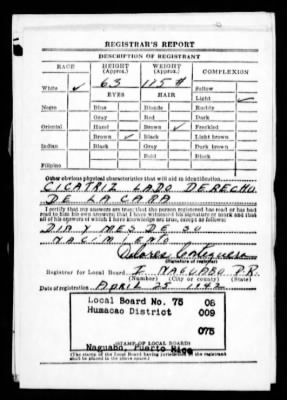 REGISTRAR'S REPORT
DESCRIPTION OF REGISTRANT
RACE HEIGHT (Approx.) WEIGHT (Approx.) COMPLEXION
63 125 #
White ✓ EYES HAIR Sallow
Light ✓
Negro Blue Blonde Ruddy
Gray Red Dark
Oriental Hazel Brown ✓ Freckled
Brown ✓ Black Light brown
Indian Black Gray Dark brown
Bald Black
Filipino
Other obvious physical characteristics that will aid in identification
CICATRIZ LADO DERECHO
DE LA CARA
I certify that my answers are true; that the person registered has read or has had
read to him his own answers; that I have witnessed his signature or mark and that
all of his answers of which I have knowledge are true, except as follows:
DIA Y MES DE SU
NACIMIENTO
Dolores
(Signature of registrar)
Registrar for Local Board I NAGUABO P.R.
(Number) (City or county) (State)
Date of registration APRIL 25 1942
Local Board No. 75 08
Humacao District 009
075
(STAMP OF LOCAL BOARD)
Naguabo, Puerto Rico
(The stamp of the Local Board having jurisdiction of the registrant
shall be placed in the above space.)